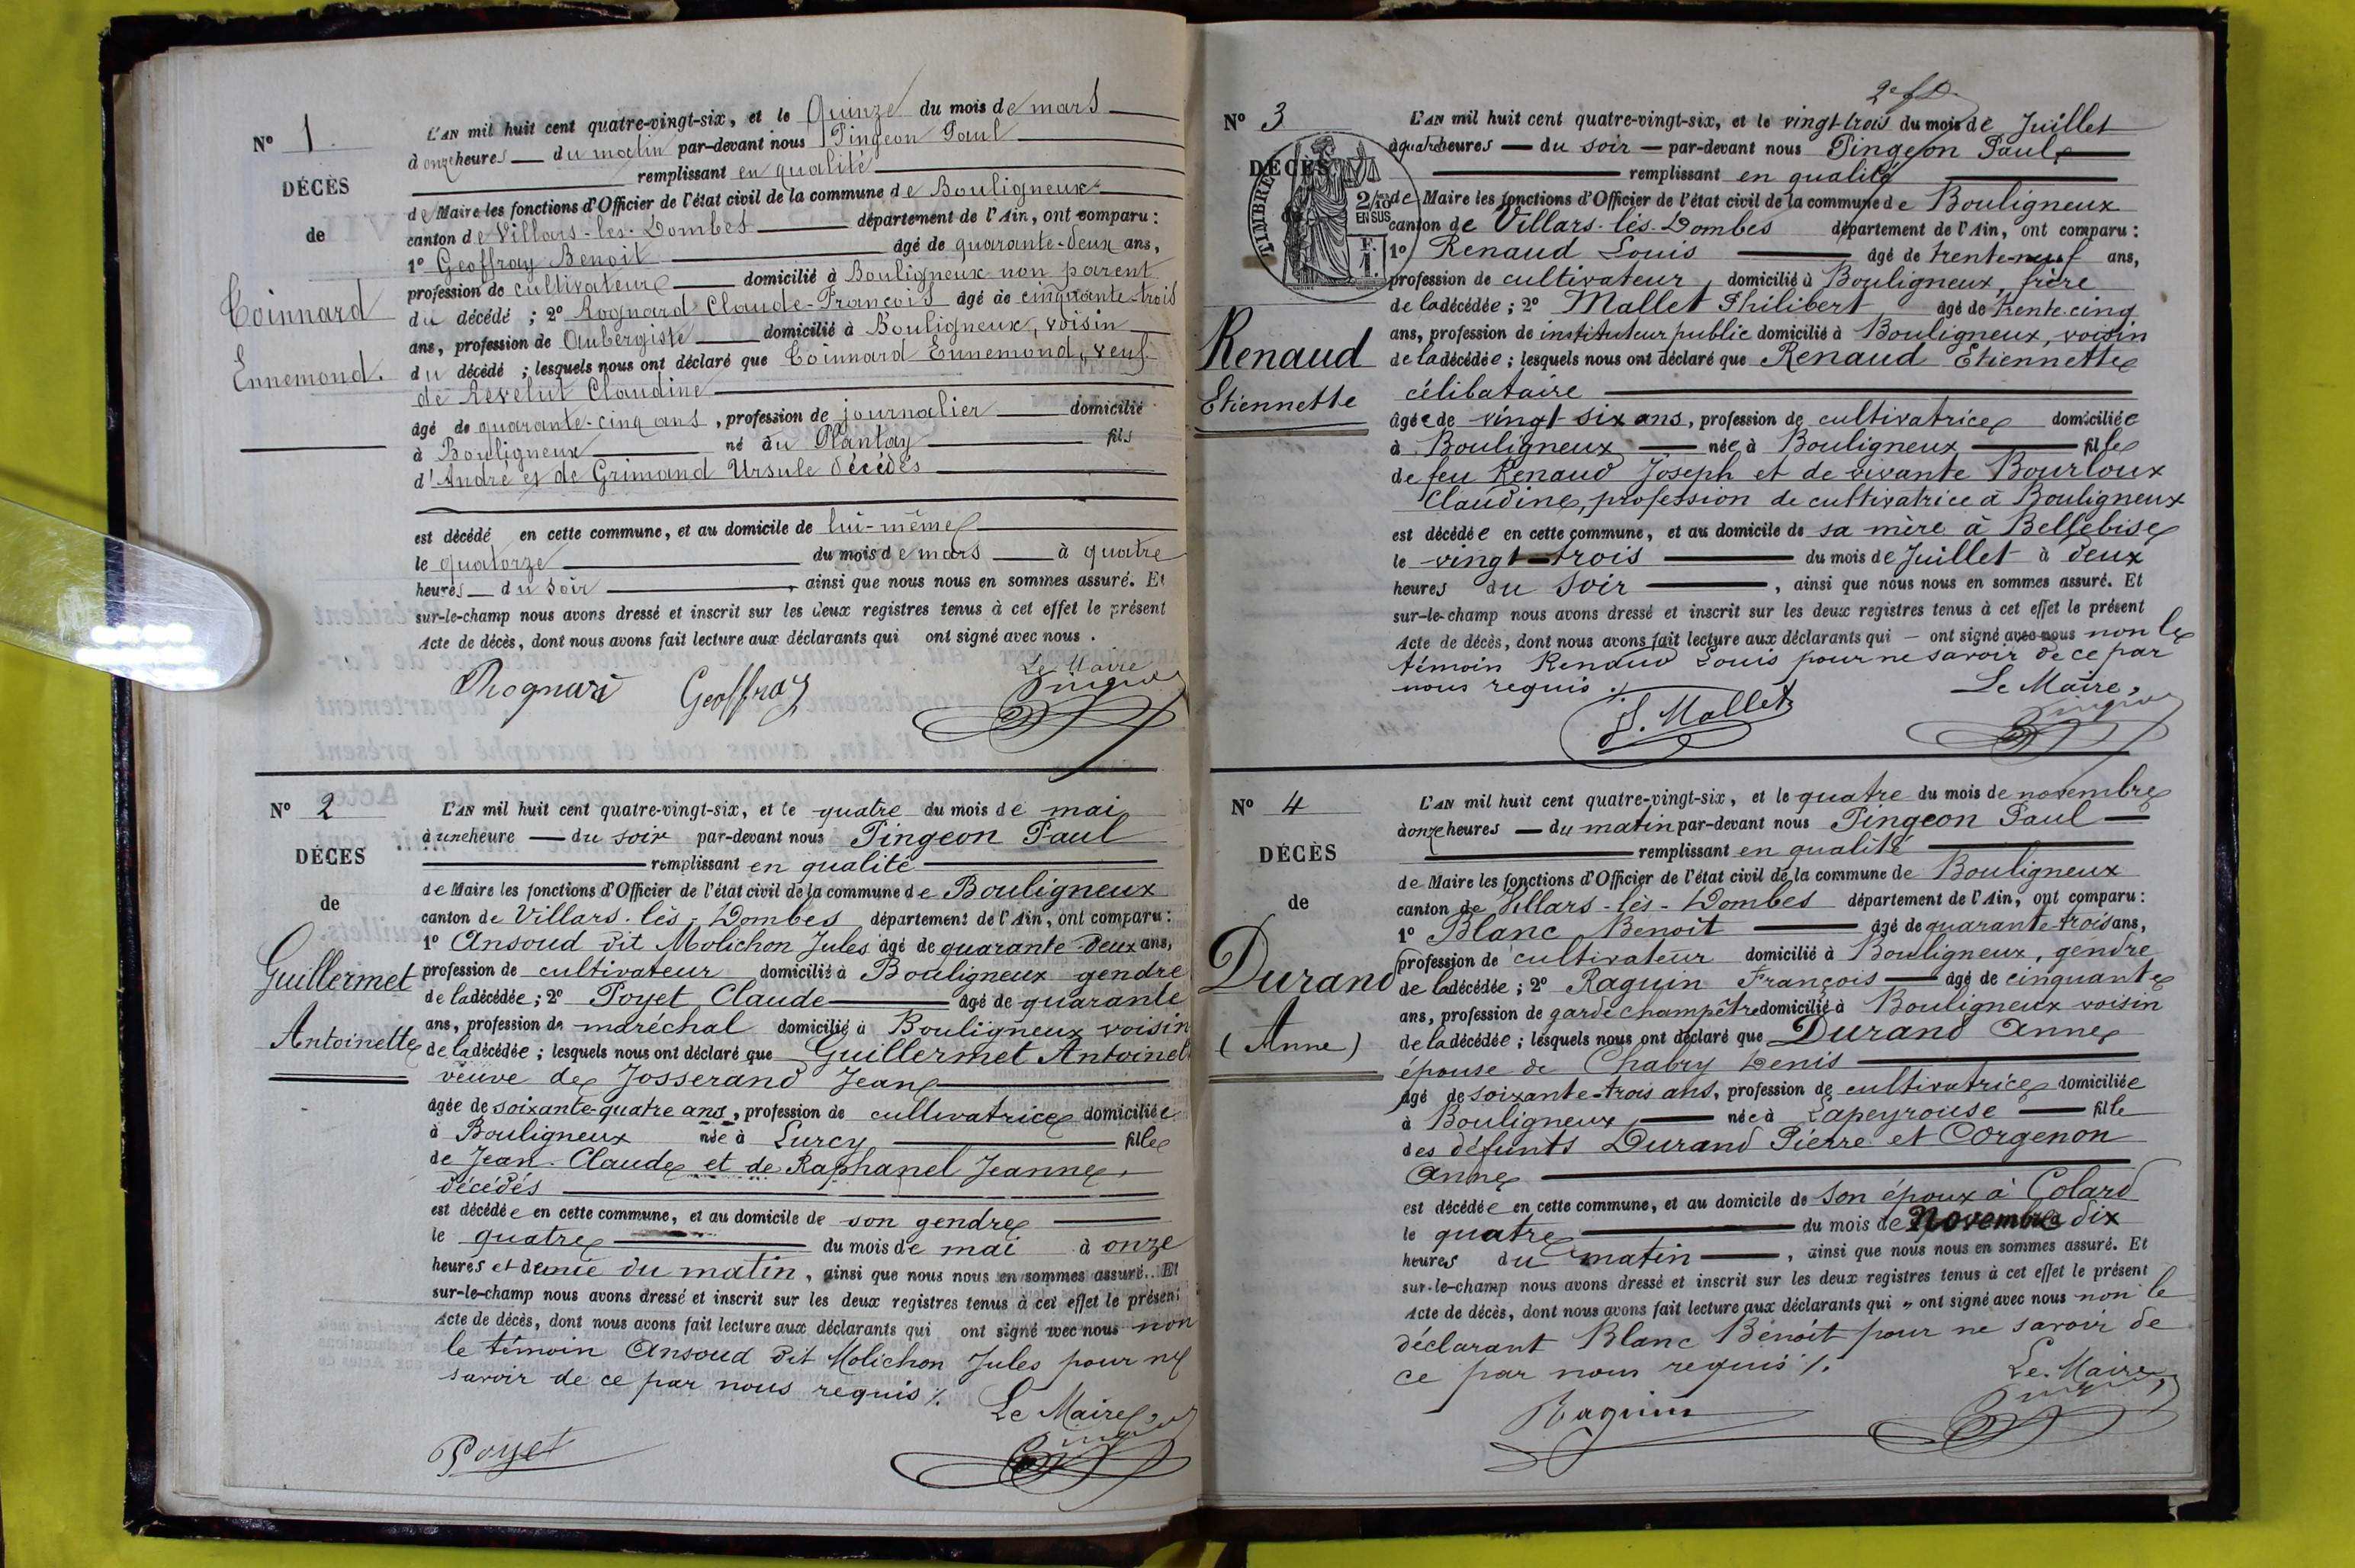 N° 1.
DÉCÈS
de
Coinnard
Ennemond.
L'AN mil huit cent quatre-vingt-six, et le Quinze du mois de mars
à onze heures du matin par-devant nous Pingeon Paul
remplissant en qualité
de Maire les fonctions d'Officier de l'état civil de la commune de Bouligneux
canton de Villars-les-Dombes département de l'Ain, ont comparu :
1° Geoffray Benoit âgé de quarante-deux ans,
profession de cultivateur domicilié à Bouligneux non parent
du décédé ; 2° Rognard Claude-François âgé de cinquante-trois
ans, profession de Aubergiste domicilié à Bouligneux, voisin
du décédé ; lesquels nous ont déclaré que Coinnard Ennemond, veuf
de Revelut Claudine
âgé de quarante-cinq ans, profession de journalier domicilié
à Bouligneux né au Plantay fils
d'André et de Grimand Ursule décédés
est décédé en cette commune, et au domicile de lui-même
le quatorze du mois de mars à quatre
heures du soir, ainsi que nous nous en sommes assuré. Et
sur-le-champ nous avons dressé et inscrit sur les deux registres tenus à cet effet le présent
Acte de décès, dont nous avons fait lecture aux déclarants qui ont signé avec nous.
Le Maire
Rognard Geoffray Pingeon
N° 2
DÉCÈS
de
Guillermet
Antoinette
L'AN mil huit cent quatre-vingt-six, et le quatre du mois de mai
à une heure du soir par-devant nous Pingeon Paul
remplissant en qualité
de Maire les fonctions d'Officier de l'état civil de la commune de Bouligneux
canton de Villars-lès-Dombes département de l'Ain, ont comparu :
1° Ansoud dit Molichon Jules âgé de quarante-deux ans,
profession de cultivateur domicilié à Bouligneux gendre
de la décédée ; 2° Poyet Claude âgé de quarante
ans, profession de maréchal domicilié à Bouligneux voisin
de la décédée ; lesquels nous ont déclaré que Guillermet Antoinet
veuve de Josserand Jean
âgée de soixante-quatre ans, profession de cultivatrice domiciliée
à Bouligneux née à Lurcy fille
de Jean-Claude et de Raphanel Jeanne,
décédés
est décédée en cette commune, et au domicile de son gendre
le quatre du mois de mai à onze
heures et demie du matin, ainsi que nous nous en sommes assuré. Et
sur-le-champ nous avons dressé et inscrit sur les deux registres tenus à cet effet le présent
Acte de décès, dont nous avons fait lecture aux déclarants qui ont signé avec nous non
le témoin Ansoud dit Molichon Jules pour ne
savoir de ce par nous requis ./.
Le Maire,
Poyet Pingeon
N° 3
DÉCÈS
TIMBRE
2/10 EN SUS
Renaud
Etiennette
L'AN mil huit cent quatre-vingt-six, et le vingt trois du mois de Juillet
à quatre heures du soir par-devant nous Pingeon Paul
remplissant en qualité
de Maire les fonctions d'Officier de l'état civil de la commune de Bouligneux
canton de Villars-lès-Dombes département de l'Ain, ont comparu :
1° Renaud Louis âgé de trente-neuf ans,
profession de cultivateur, domicilié à Bouligneux, frère
de la décédée ; 2° Mallet Philibert âgé de trente-cinq
ans, profession de instituteur public domicilié à Bouligneux, voisin
de la décédée ; lesquels nous ont déclaré que Renaud Etiennette
célibataire
âgée de vingt-six ans, profession de cultivatrice domiciliée
à Bouligneux née à Bouligneux fille
de feu Renaud Joseph et de vivante Bourloux
Claudine, profession de cultivatrice à Bouligneux
est décédée en cette commune, et au domicile de sa mère à Bellebise
le vingt-trois du mois de Juillet à deux
heures du soir, ainsi que nous nous en sommes assuré. Et
sur-le-champ nous avons dressé et inscrit sur les deux registres tenus à cet effet le présent
Acte de décès, dont nous avons fait lecture aux déclarants qui ont signé avec nous non le
témoin Renaud Louis pour ne savoir de ce par
nous requis ./.
Le Maire,
Mallet Pingeon
N° 4
DÉCÈS
de
Durand
(Anne)
L'AN mil huit cent quatre-vingt-six, et le quatre du mois de novembre
à onze heures du matin par-devant nous Pingeon Paul
remplissant en qualité
de Maire les fonctions d'Officier de l'état civil de la commune de Bouligneux
canton de Villars-lès-Dombes département de l'Ain, ont comparu :
1° Blanc Benoit âgé de quarante-trois ans,
profession de cultivateur domicilié à Bouligneux, gendre
de la décédée ; 2° Raguin François âgé de cinquante
ans, profession de garde champêtre domicilié à Bouligneux voisin
de la décédée ; lesquels nous ont déclaré que Durand Anne
épouse de Chabry Denis
âgé de soixante-trois ans, profession de cultivatrice domiciliée
à Bouligneux, née à Lapeyrouse fille
des défunts Durand Pierre et Corgenon
Anne
est décédée en cette commune, et au domicile de son époux à Colard
le quatre du mois de Novembre dix
heures du matin, ainsi que nous nous en sommes assuré. Et
sur-le-champ nous avons dressé et inscrit sur les deux registres tenus à cet effet le présent
Acte de décès, dont nous avons fait lecture aux déclarants qui ont signé avec nous non le
déclarant Blanc Benoit pour ne savoir de
ce par nous requis ./.
Le Maire,
Raguin Pingeon